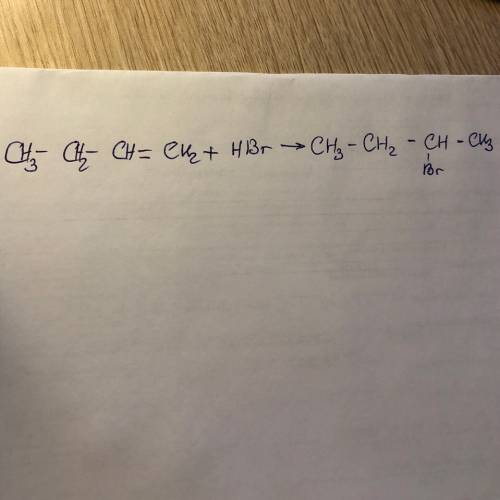 CH₃ – CH₂ – CH = CH₂ + HBr → CH₃ – CH₂ – CH – CH₃
Br